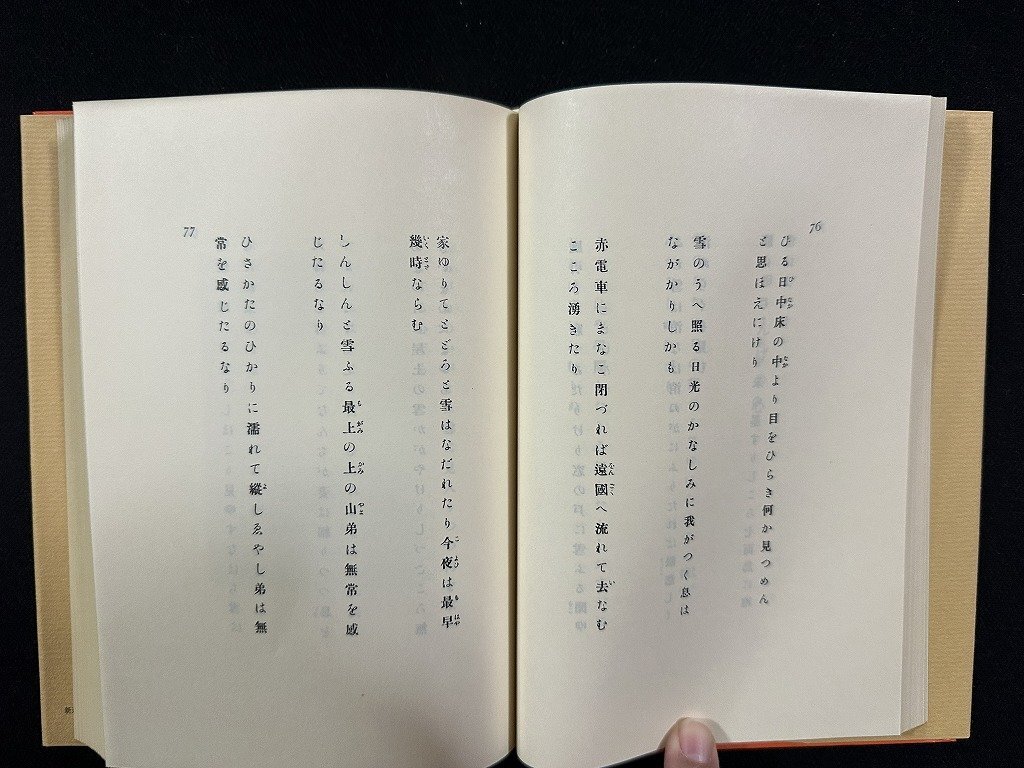 76
ひる日中床の中より目をひらき何か見つめん
と思ほえにけり
雪のうへ照る日光のかなしみに我がつく息は
ながかりしかも
赤電車にまなこ閉づれば遠國へ流れて去なむ
こころ湧きたり
家ゆりてとどろと雪はなだれたり今夜は最早
幾時ならむ
しんしんと雪ふる最上の上の山弟は無常を感
じたるなり
ひさかたのひかりに濡れて縦しゑやし弟は無
常を感じたるなり
77